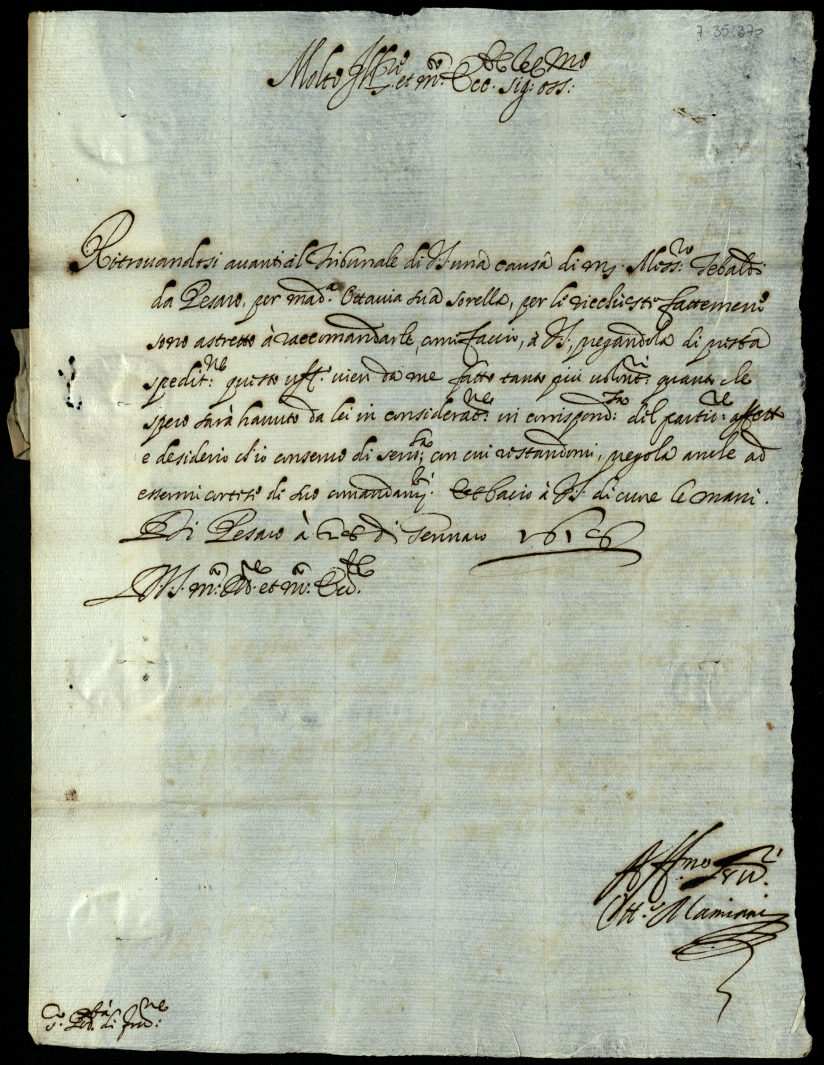 7-35-370
Molto Ill.re et m.to Ecc.te Sig.r oss.mo
Ritrouandosi auanti il Tribunale di V.S. una causa di m.s Aless.ro Tebaldi
da Pesaro, per mad.a Ottauia sua sorella, per le ricchieste fattemeni
sono astretto à raccomandarle, come faccio, à V.S., pregandola di presta
spedit.ne questo uff.o uien da me fatto tanto più uolont.ri quanto che
spero sarà hauuto da lei in considerat.ne in corrispond.za del partic.re affetto
e desiderio ch'io conseruo di seru.la; con cui restandomi, pregola anche ad
essermi cortese di suo comandam.ti. Et bacio à V.S. di cuore le mani.
Di Pesaro à 28 di Gennaro 1618
D.V.S. m.to Ill.re et m.to Ecc.te
Aff.mo Ser.re
Ott.o Mamiani